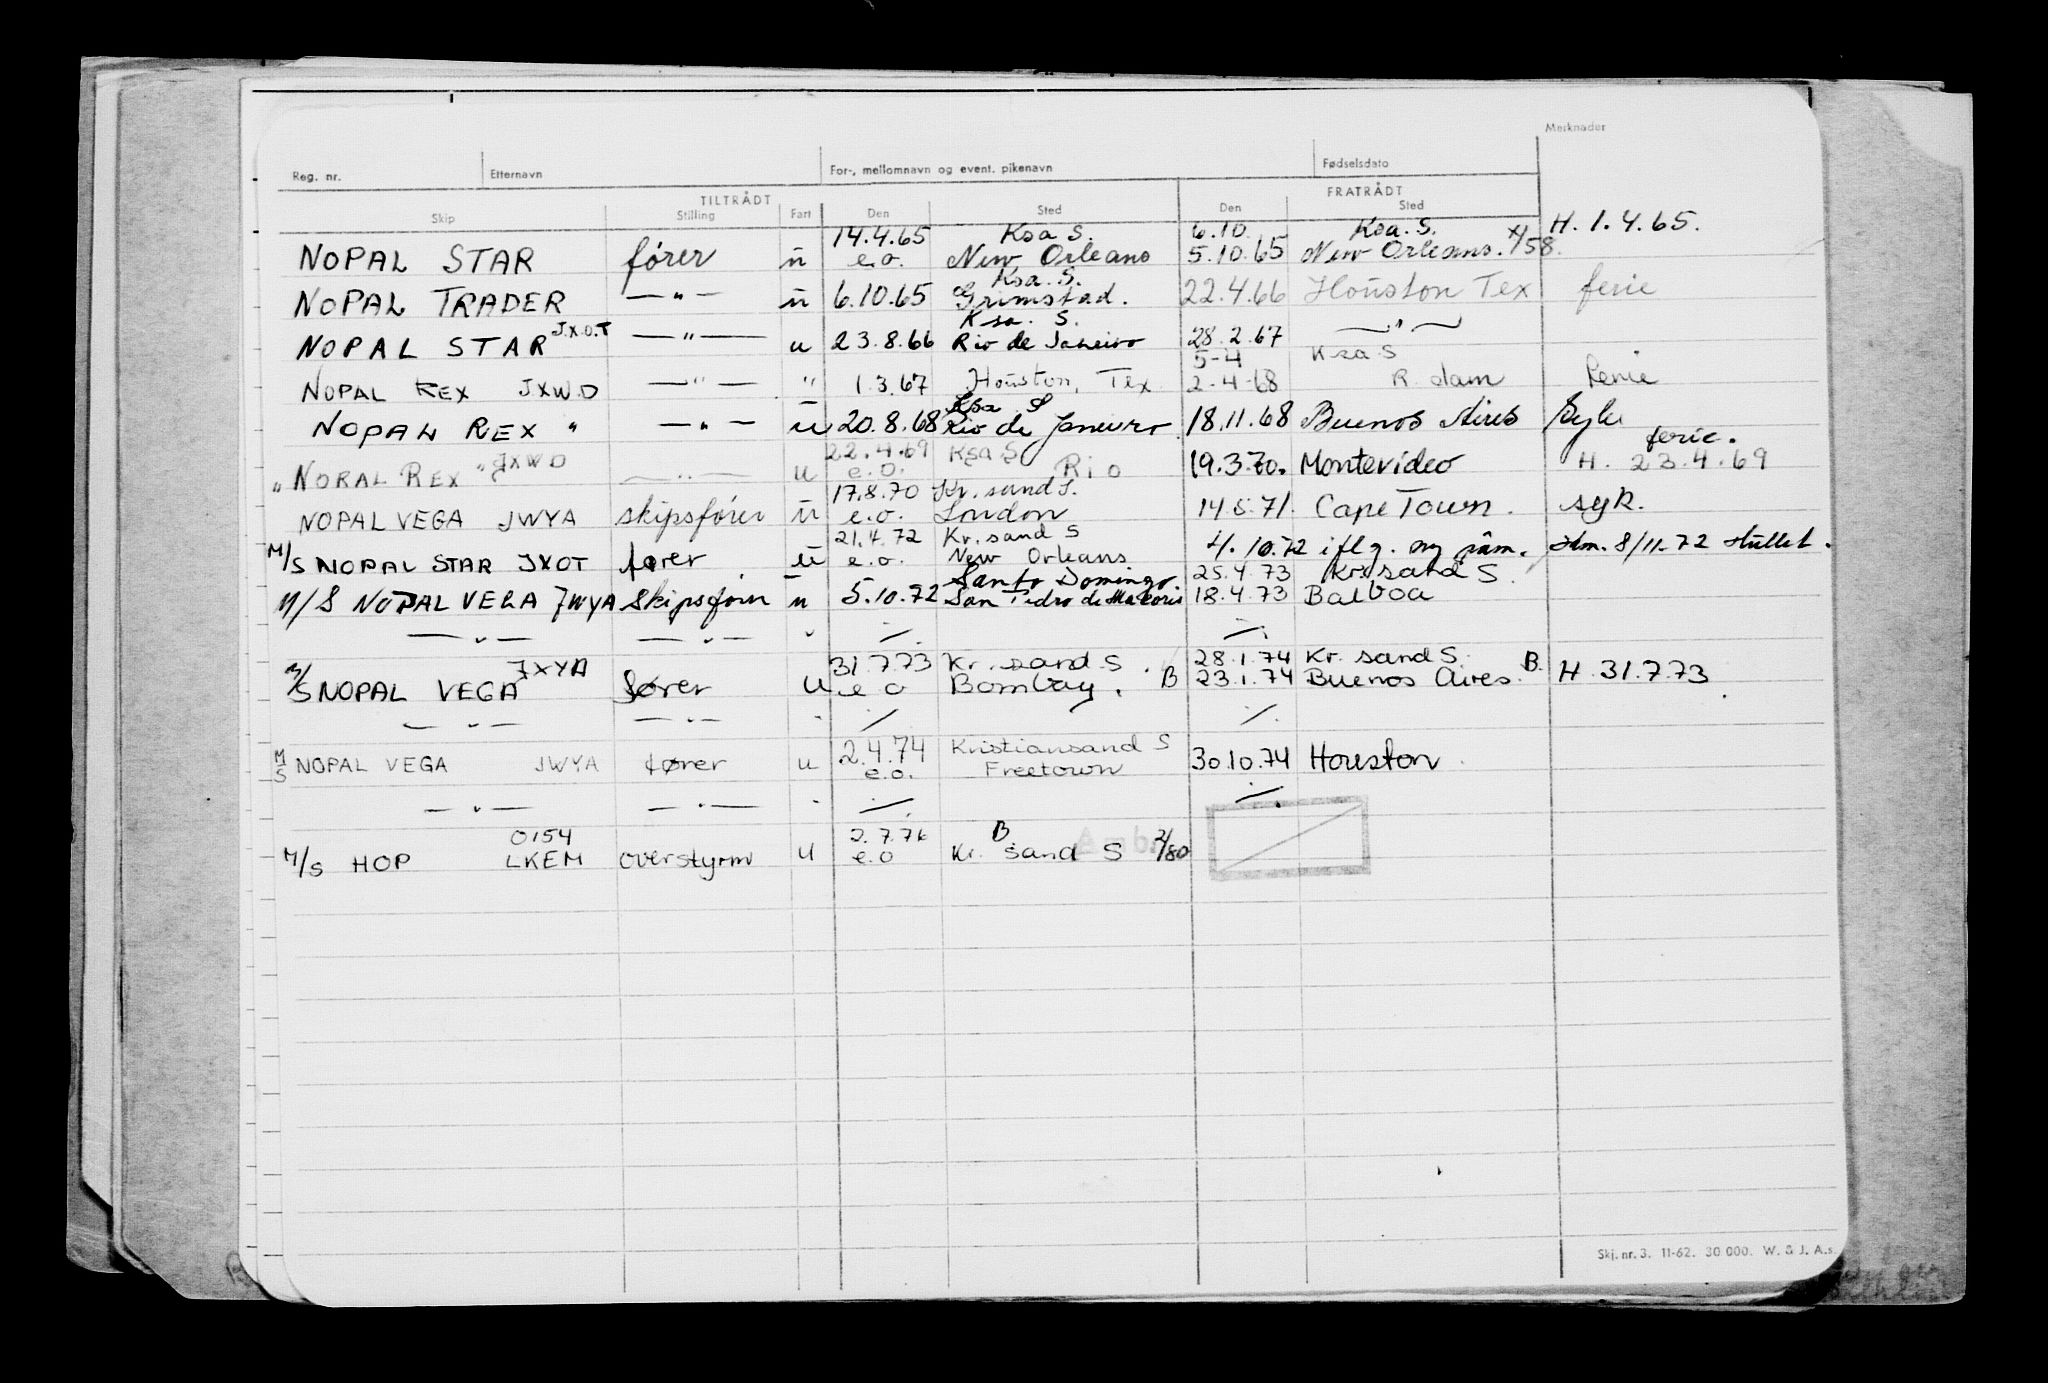 Merknader
Reg. nr. Etternavn For-, mellomnavn og event. pikenavn Fødselsdato
TILTRÅDT FRATRÅDT
Skip Stilling Fart Den Sted Den Sted
14.4.65 Ksa S. 6.10. Ksa. S. H. 1.4.65.
NOPAL STAR fører u e.o. New Orleans 5.10.65 New Orleans. /58.
Ksa. S.
NOPAL TRADER — " — u 6.10.65 Grimstad. 22.4.66 Houston Tex ferie
J.X.O.T Ksa. S.
NOPAL STAR — " — u 23.8.66 Rio de Janeiro 28.2.67 — " —
5-4 Ksa S
NOPAL REX JXWD — " — " 1.3.67 Houston, Tex 2-4-68 R. dam ferie
Ksa S
NOPAL REX " — " — u 20.8.68 Rio de Janeiro 18.11.68 Buenos Aires Syk
22.4.69 Ksa S ferie.
" NORAL REX " JXWD — " — u e.o. Rio 19.3.70. Montevideo H. 23.4.69
17.8.70 Kr. sand S.
NOPAL VEGA JWYA skipsfører u e.o. London 14.5.71. Cape Town. syk.
21.4.72 Kr. sand S
M/S NOPAL STAR JXOT fører u e.o. New Orleans 4.10.72 iflg. ny påm. Hm. 8/11-72 Hullet.
Santo Domingo 25.4.73 Kr. sand S.
M/S NOPAL VEGA JWYA Skipsfører u 5.10.72 San Pedro de Macoris 18.4.73 Balboa
— " — — " — " ./. ./.
JXYA 31.7.73 Kr. sand S. 28.1.74 Kr. sand S. B.
M/S NOPAL VEGA fører u e o Bombay. B 23.1.74 Buenos Aires. H. 31.7.73.
— " — — " — " ./. ./.
2.4.74 Kristiansand S
M/S NOPAL VEGA JWYA fører u e.o. Freetown 30.10.74 Houston.
— " — — " — " ./. ./.
0154 2.7.76 B
M/S HOP LKEM overstyrm u e.o Kr. sand S 2/80
Skj. nr. 3. 11-62. 30 000. W. & J. A.s.